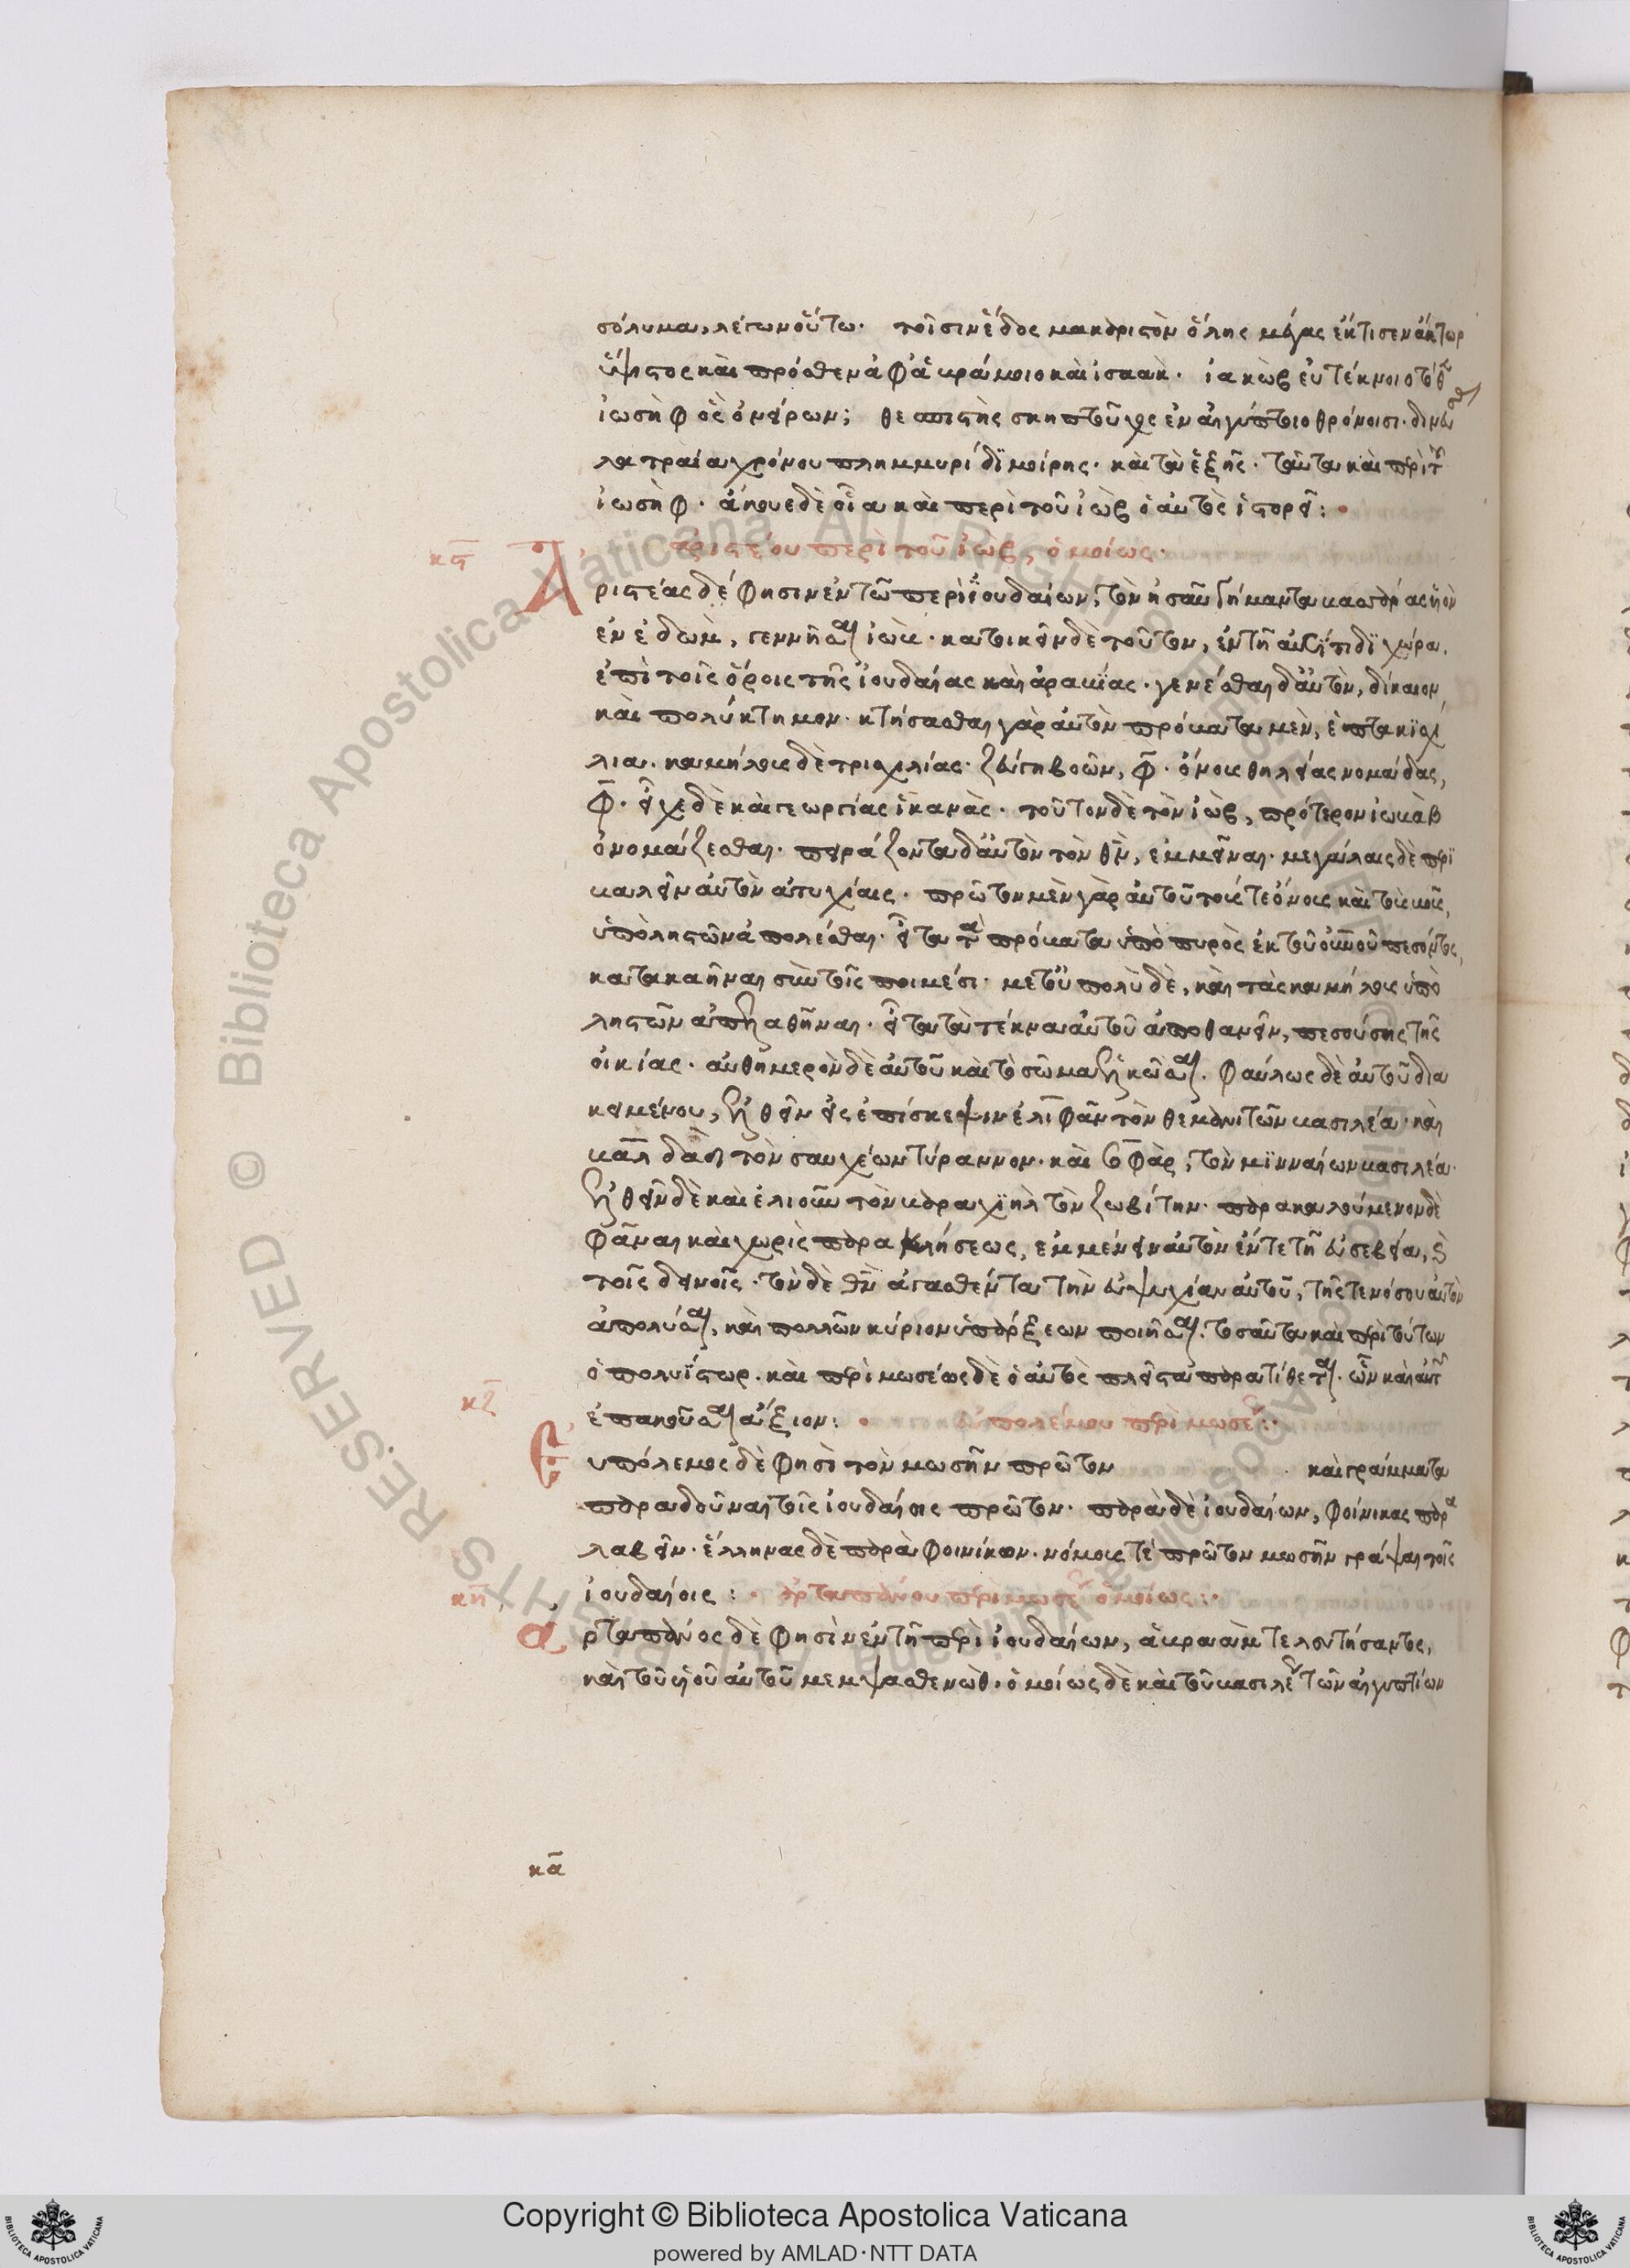 σόλυμα, λέγων οὕτω· τοῖσιν ἕδος μακαριστὸν ὅλης μέγας ἔκτισεν ἄκτωρ
ὕψιστος καὶ πρόσθεν ἀφ' ἁβράμοιο καὶ ἰσαάκ· ἰακὼβ εὐτέκνοιο
ἰωσὴφ ὃς ὀνείρων; θεσπιστὴς σκηπτοῦχος ἐν αἰγύπτιο θρόνοισι·
λάθραια χρόνου πλημμυρίδι μοίρης· καὶ τὰ ἑξῆς· ταῦτα καὶ περὶ τοῦ
ἰωσήφ· ἄκουε δὲ οἷα καὶ περὶ τοῦ ἰὼβ ὁ αὐτὸς ἱστορεῖ:
κϛ ἀριστέου περὶ τοῦ ἰώβ, ὁμοίως·
Ἀριστέας δέ φησιν ἐν τῶ περὶ ἰουδαίων, τὸν ἡσαῦ γήμαντα βασσάρας υἱὸν
ἐν ἐδώμ, γεννῆσαι ἰώβ· κατοικεῖν δὲ τοῦτον, ἐν τῆ αὐσίτιδι χώρα.
ἐπὶ τοῖς ὅροις τῆς ἰουδαίας καὶ ἀραβίας· γενέσθαι δ' αὐτὸν, δίκαιον,
καὶ πολύκτημον· κτήσασθαι γὰρ αὐτὸν πρόβατα μὲν, ἑπτακισχί
λια. καμήλους δὲ τρισχιλίας· ζεύγη βοῶν, φ· ὄνους θηλείας νομάδας,
φ· εἶχε δὲ καὶ γεωργίας ἱκανάς· τοῦτον δὲ τὸν ἰώβ, πρότερον ἰωβὰβ
ὀνομάζεσθαι· πειράζοντα δ' αὐτὸν τὸν θν, ἐμμεῖναι· μεγάλαις δὲ περι
βαλεῖν αὐτὸν ἀτυχίαις. πρῶτον μὲν γὰρ αὐτοῦ τούς τε ὄνους καὶ τοὺς βοῦς,
ὑπὸ ληστῶν ἀπολέσθαι· εἶτα τὰ πρόβατα ὑπὸ πυρὸς ἐκ τοῦ οὐνοῦ πεσόντος,
κατακαῆναι σὺν τοῖς ποιμέσι· μετ' οὐ πολὺ δὲ, καὶ τὰς καμήλους ὑπὸ
ληστῶν ἀπελαθῆναι· εἶτα τὰ τέκνα αὐτοῦ ἀποθανεῖν, πεσούσης τῆς
οἰκίας· αὐθημερὸν δὲ αὐτοῦ καὶ τὸ σῶμα ἑλκῶσαι. φαύλως δὲ αὐτοῦ δια
κειμένου, ἐλθεῖν εἰς ἐπίσκεψιν ἐλιφὰν τὸν θεμανιτῶν βασιλέα· καὶ
βαλδὰδ τὸν σαυχέων τύραννον· καὶ σωφὰρ, τὸν μινναίων βασιλέα·
ἐλθεῖν δὲ καὶ ἐλιοῦν τὸν βαραχιὴλ τὸν ζωβίτην· παρακαλούμενον δὲ
φάναι καὶ χωρὶς παρακλήσεως, ἐμμένειν αὐτὸν ἔν τε τῆ εὐσεβεία, καὶ
τοῖς δεινοῖς· τὸν δὲ θν ἀγασθέντα τὴν εὐψυχίαν αὐτοῦ, τῆς τε νόσου αὐτὸν
ἀπολύσαι, καὶ πολλῶν κύριον ὑπάρξεων ποιῆσαι. τοσαῦτα καὶ περὶ τούτων
ὁ πολυΐστωρ. καὶ περὶ μωσέως δὲ ὁ αὐτὸς πλεῖστα παρατίθεται· ὧν καὶ αὐτῶν
κζ ἐπακοῦσαι ἄξιον: εὐπολέμου περὶ μωσέως:·
Εὐπόλεμος δὲ φησὶ τὸν μωσῆν πρῶτον καὶ γράμματα
παραδοῦναι τοῖς ἰουδαίοις πρῶτον· παρὰ δὲ ἰουδαίων, φοίνικας παρα
λαβεῖν· ἕλληνας δὲ παρὰ φοινίκων· νόμους τε πρῶτον μωσῆν γράψαι τοῖς
κη ἰουδαίοις: ἀρταπάνου περὶ μωσέως ὁμοίως:·
ἀρταπάνος δὲ φησὶν ἐν τῆ περὶ ἰουδαίων, ἁβραὰμ τελευτήσαντος,
καὶ τοῦ υἱοῦ αὐτοῦ μεμψασθενώθ· ὁμοίως δὲ καὶ τοῦ βασιλέως τῶν αἰγυπτίων
κα
Biblioteca Apostolica Vaticana ALL RIGHTS RESERVED ©
Copyright © Biblioteca Apostolica Vaticana
powered by AMLAD·NTT DATA